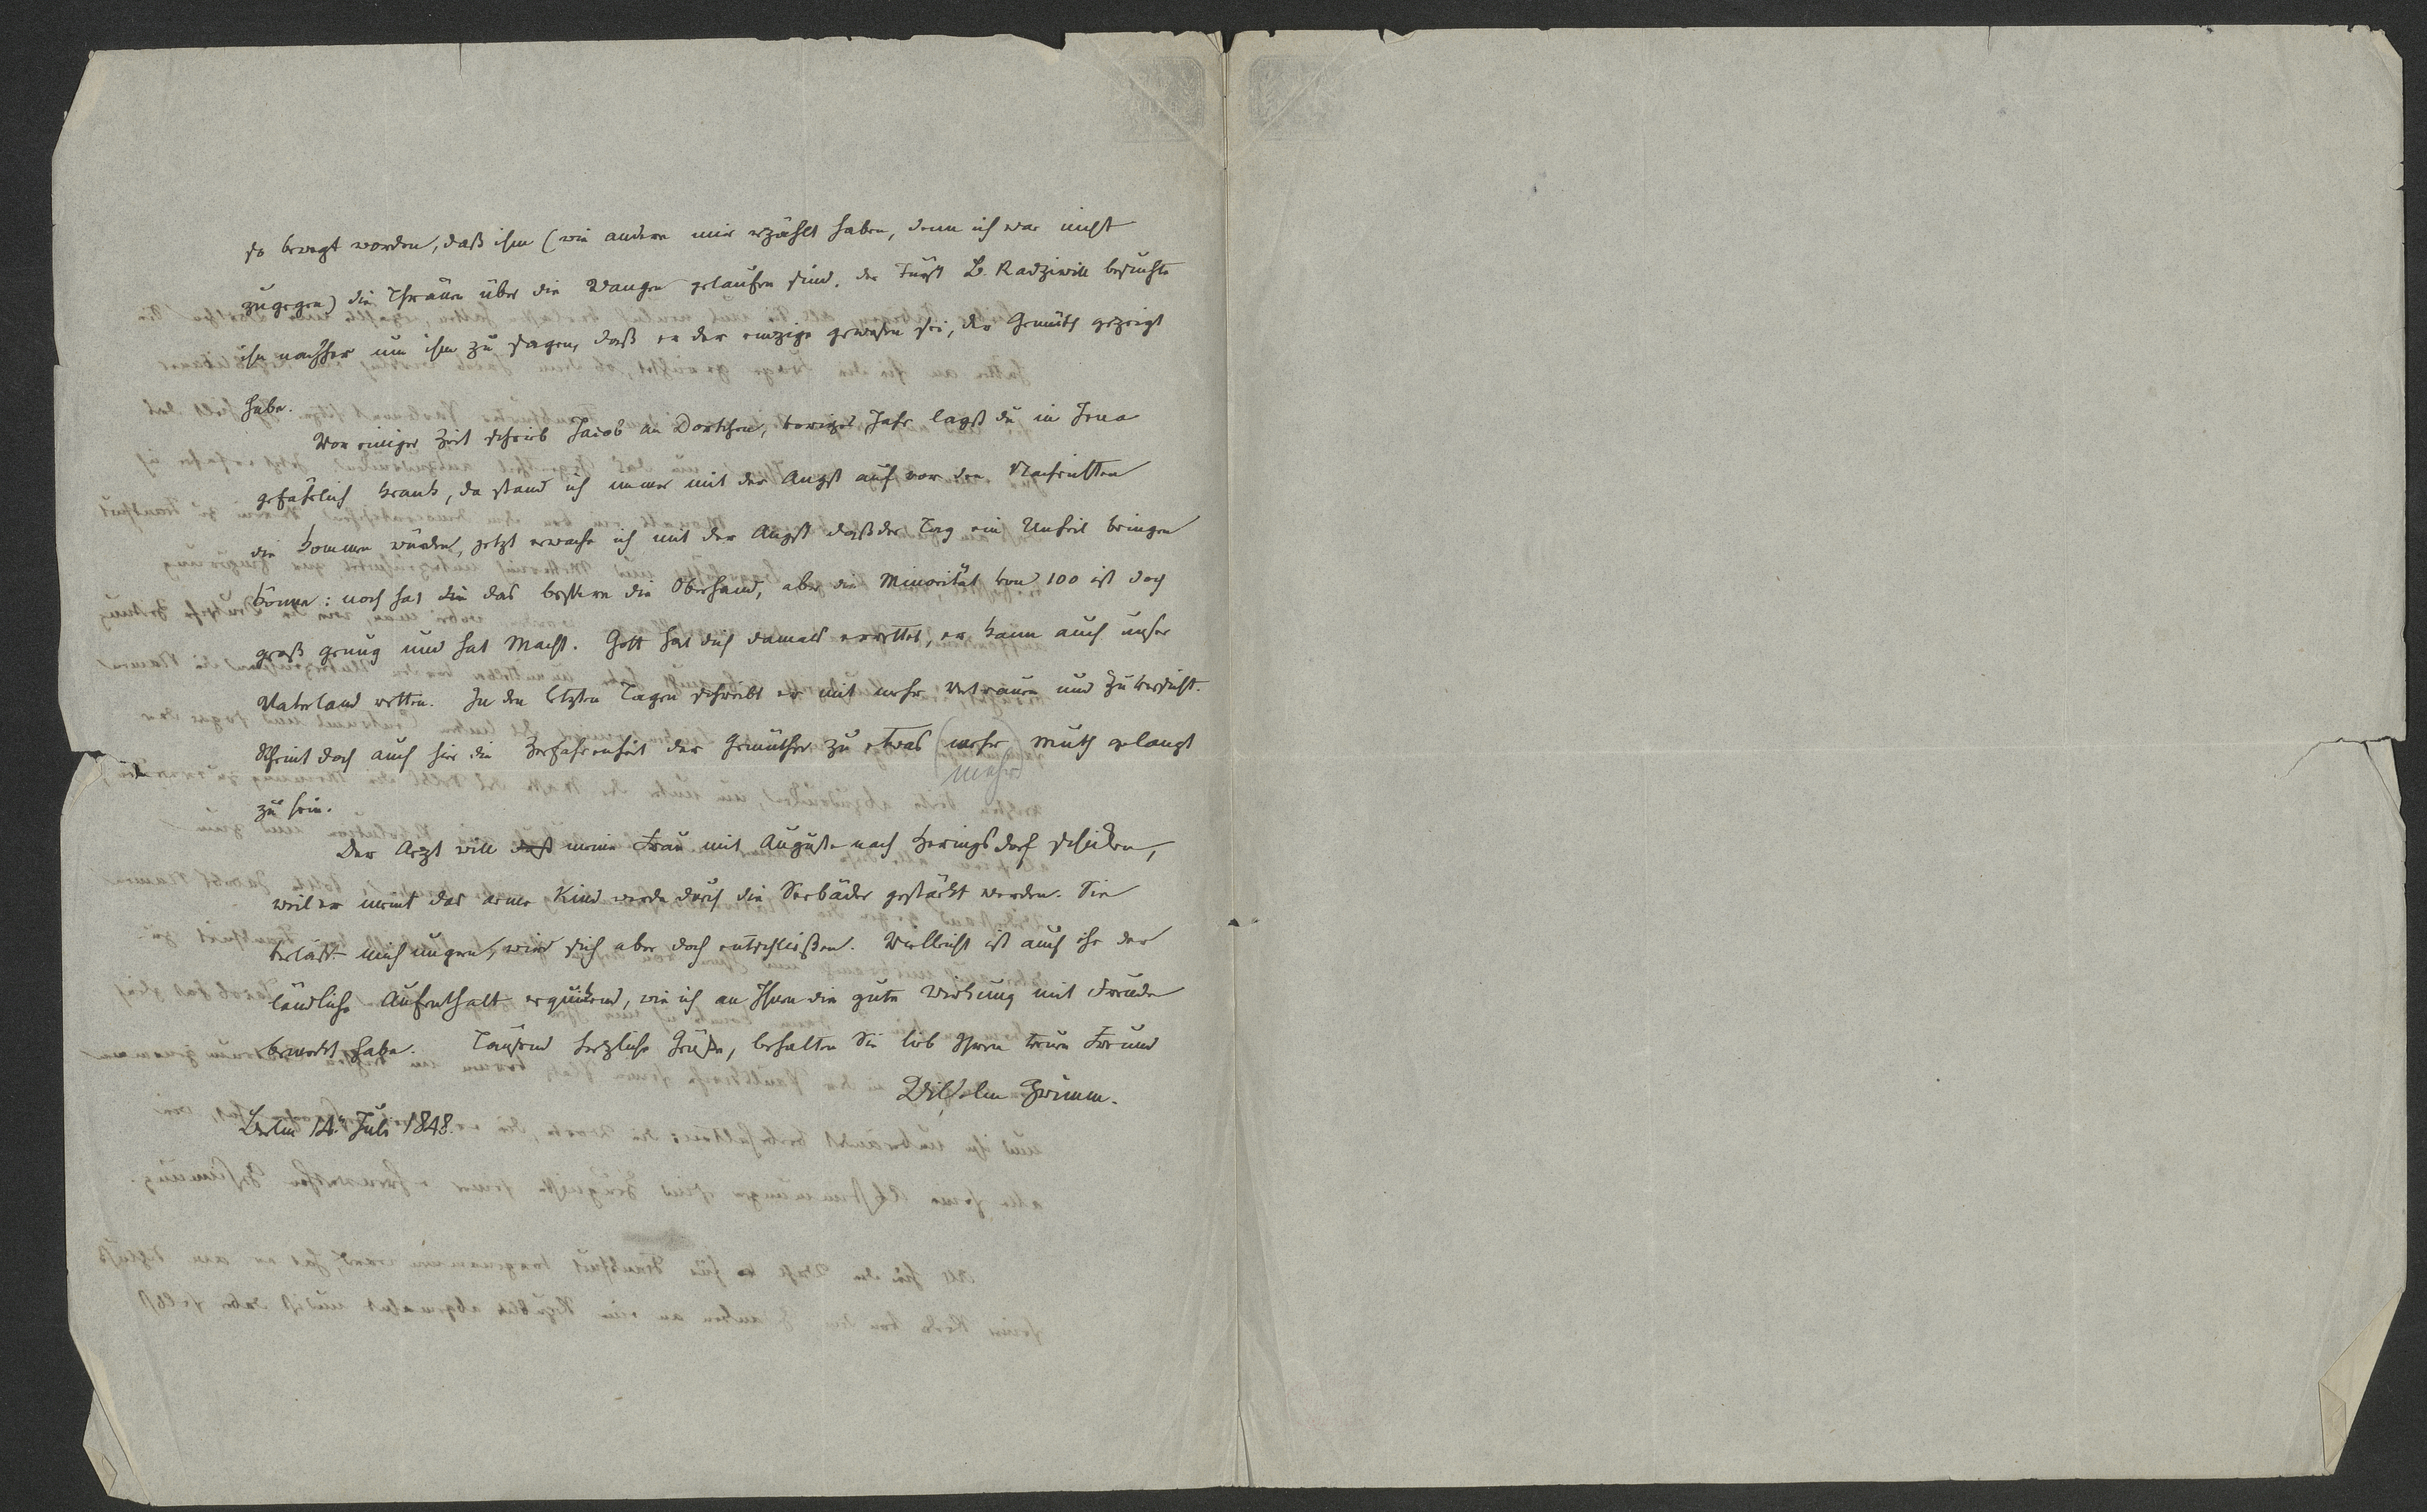 so bewegt worden, daß ihm (wie andere mir erzählt haben, denn ich war nicht
zugegen) die Thränen über die Wangen gelaufen sind. der Fürst B. Radziwill besuchte
ihn nachher um ihm zu sagen, daß er der einzige gewesen sei, der Gemüth gezeigt
habe.
Vor einiger Zeit schrieb Jacob an Dortchen, voriges Jahr lagst du in Jena
gefährlich krank, da stand ich immer mit der Angst auf vor den Nachrichten
die kommen würden, jetzt erwache ich mit der Angst daß der Tag ein Unheil bringen
könne: noch hat das bessere die Oberhand, aber die Minorität von 100 ist doch
groß genug und hat Macht. Gott hat dich damals errettet, er kann auch unser
Vaterland retten. In den letzten Tagen schreibt er mit mehr Vertrauen und Zuversicht.
Scheint doch auch hier die Zerfahrenheit der Gemüther zu etwas (mehr) Muth gelangt
mehr
zu sein.
Der Arzt will daß meine Frau mit Auguste nach Heringsdorf schicken,
weil er meint das arme Kind werde durch die Seebäder gestärkt werden. Sie
verläßt mich ungern, wird sich aber doch entschließen. Vielleicht ist auch ihr der
ländliche Aufenthalt erquickend, wie ich an Ihnen die gute Wirkung mit Freude
bemerkt habe. Tausend herzliche Grüße, behalten Sie lieb Ihren treuen Freund
Wilhelm Grimm.
Berlin 14. Juli 1848.